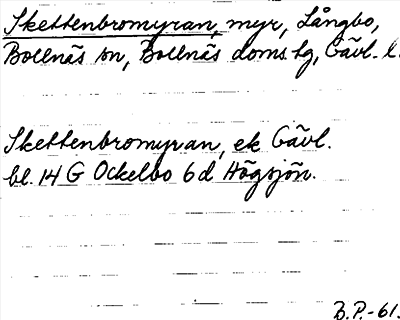 Skettenbromyran, myr, Långbo,
Bollnäs sn, Bollnäs doms.tg, Gävl. l.
Skettenbromyran, ek Gävl.
bl. 14 G Ockelbo 6d Högsjön.
B.P.-61.